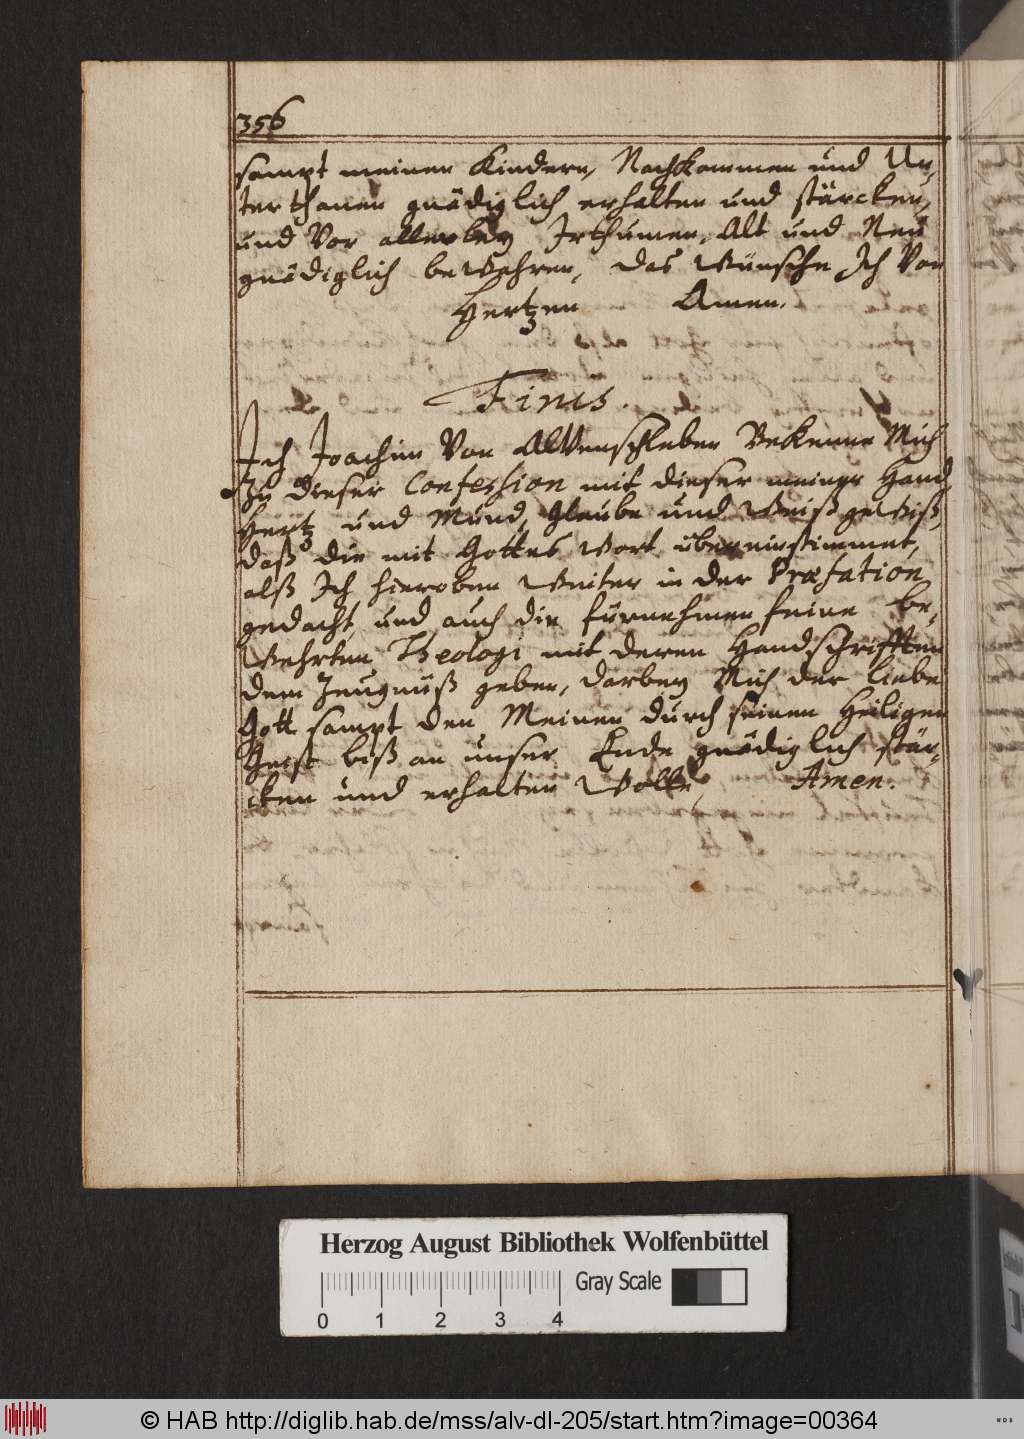 356
sampt meinen Kindern, Nachkommen und Un,
terthanen gnädiglich erhalten und stärcken,
und Vor allerley Irthumen, Alt und Neu
gnädiglich beWehren, das Wünsche Ich Von
Hertzen Amen.
Finis.
Ich Joachim Von AlVenschleben Bekenne Mich
Zu dieser Confession mit dieser meiner Hand,
Hertz und Mund, Glaube und Weiß geWiß,
daß die mit Gottes Wort übereinstimmet,
alß Ich hieroben Weiter in der Præfation
gedacht, und auch die fürnehmen feine be,
Wehrten Theologi mit deren Handschrifften
dem Zeugnüß geben, darbey Mich der liebe
Gott sampt den Meinen durch seinen Heiligen
Geist biß an unser Ende gnädiglich stär,
cken und erhalten Wolle, Amen.
Herzog August Bibliothek Wolfenbüttel
Gray Scale
0 1 2 3 4
© HAB http://diglib.hab.de/mss/alv-dl-205/start.htm?image=00364